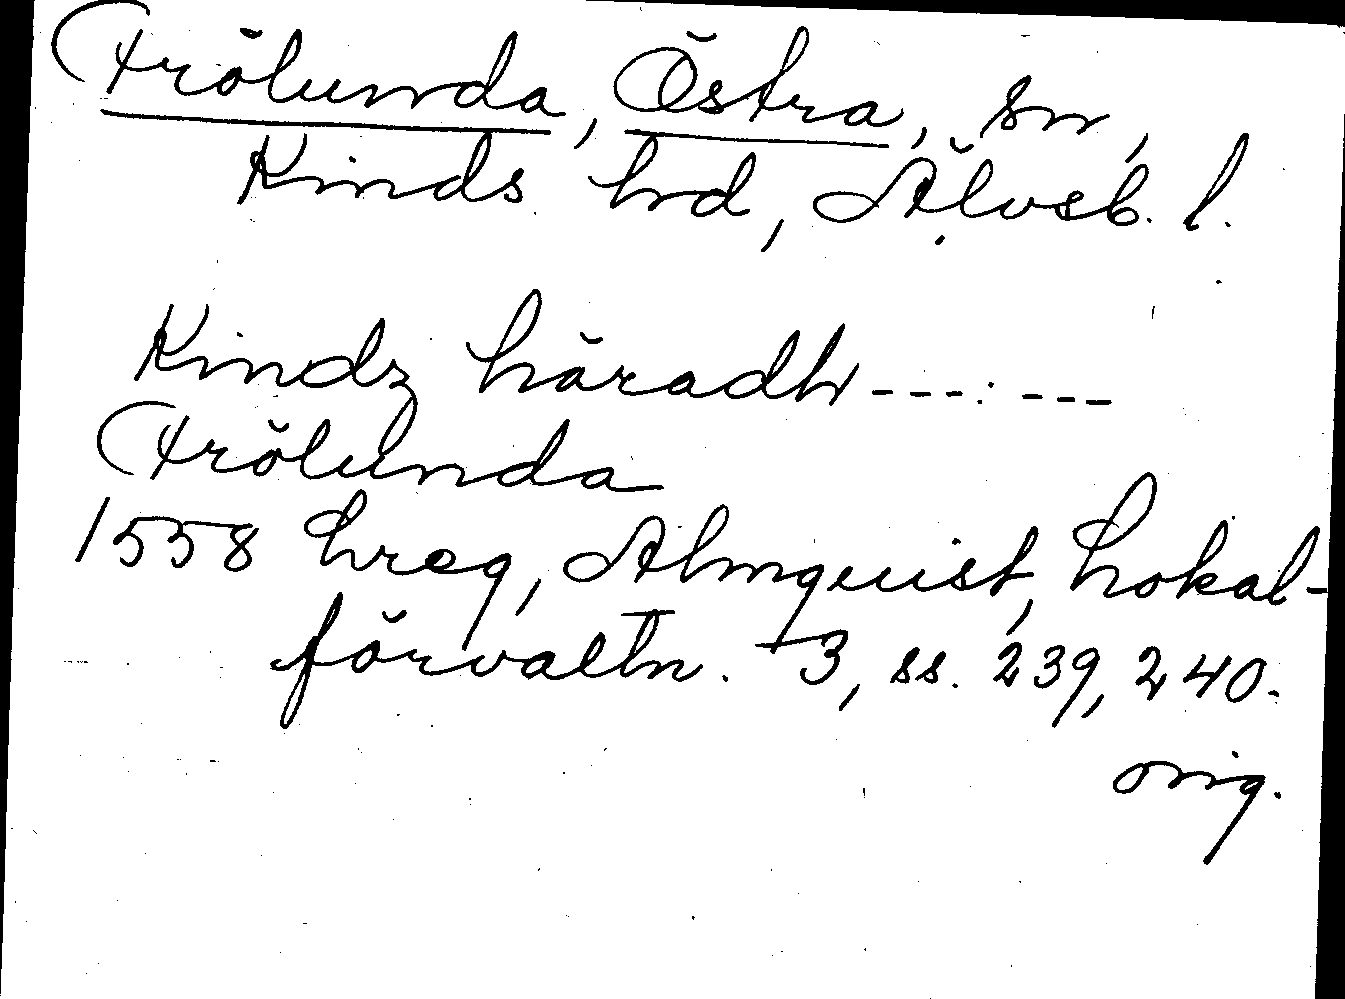 Frölunda, Östra, sn,
Kinds hd, Älvsb. l.
Kindz häradh --- : ---
Frölunda
1558 hreg, Almquist, Lokal-
förvaltn. 3, ss. 239, 240.
orig.